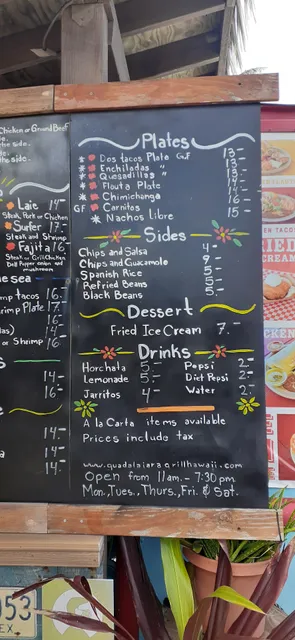 Chicken or Ground Beef
the side.
the side.
Laie 14-
Steak, Pork or Chicken
Surfer 17-
Steak and Shrimp
Fajita 16-
Steak or Grill Chicken
Bell Pepper onion and
mushroom
tacos 16-
Plate 17-
or Shrimp 16-
14-
16-
14-
14-
14-
Plates
Dos tacos Plate GF 13-
Enchiladas " 13-
Quesadillas "
Flauta Plate
Chimichanga
GF Carnitas 16-
Nachos libre 15-
Sides
Chips and Salsa 4-
Chips and Guacamole 9-
Spanish Rice 5-
Refried Beans 5-
Black Beans 5-
Dessert
Fried Ice Cream 7-
Drinks
Horchata 5-
Lemonade 5-
Jarritos 4-
Pepsi 2-
Diet Pepsi 2-
Water 2-
A la Carta items available
Prices include tax
www.guadalajaragrillhawaii.com
Open from 11am.- 7:30pm
Mon., Tues., Thurs., Fri. & Sat.
953